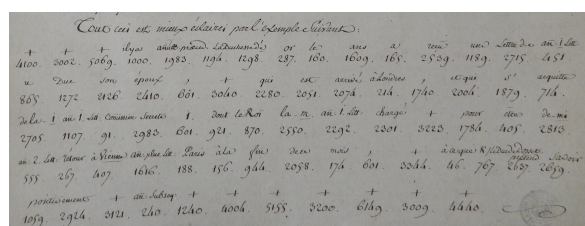 Tout ceci est mieux eclairci par l'exemple Suivant:
+ + + ilya au précéd. La Duchesse de or le ans a reçu une Lettre de au 1. Lett
4100. 3002. 5069. 1000. 1983. 1194. 1298. 287. 160. 1609. 165. 2539. 1189. 2715. 451.
u Duc son époux, + qui est arrivé à Londres, et que s' aquitte
865. 1272. 2126. 2410. 601. 3040. 2280. 2051. 2074. 214. 1740. 2004. 1879. 714.
de la 1 au 1. Lett Commission secrete 1. dont le Roi la m. au 1. Lett chargé + pour etre de mi
2705. 1107. 91. 2983. 601. 921. 870. 2550. 2292. 2301. 3223. 1784. 405. 2813.
au 2. Lett. retour à Vienne au plus. Lett. Paris à la fin de ce mois, + à ce que
555. 267. 407. 1616. 188. 156. 944. 2058. 174. 601. 3344. 46. 767. 2637. 2659.
+ au Subseq + + + + + + +
1059. 2924. 3121. 240. 1240. 4004. 5155. 3200. 6149. 3009. 4440.